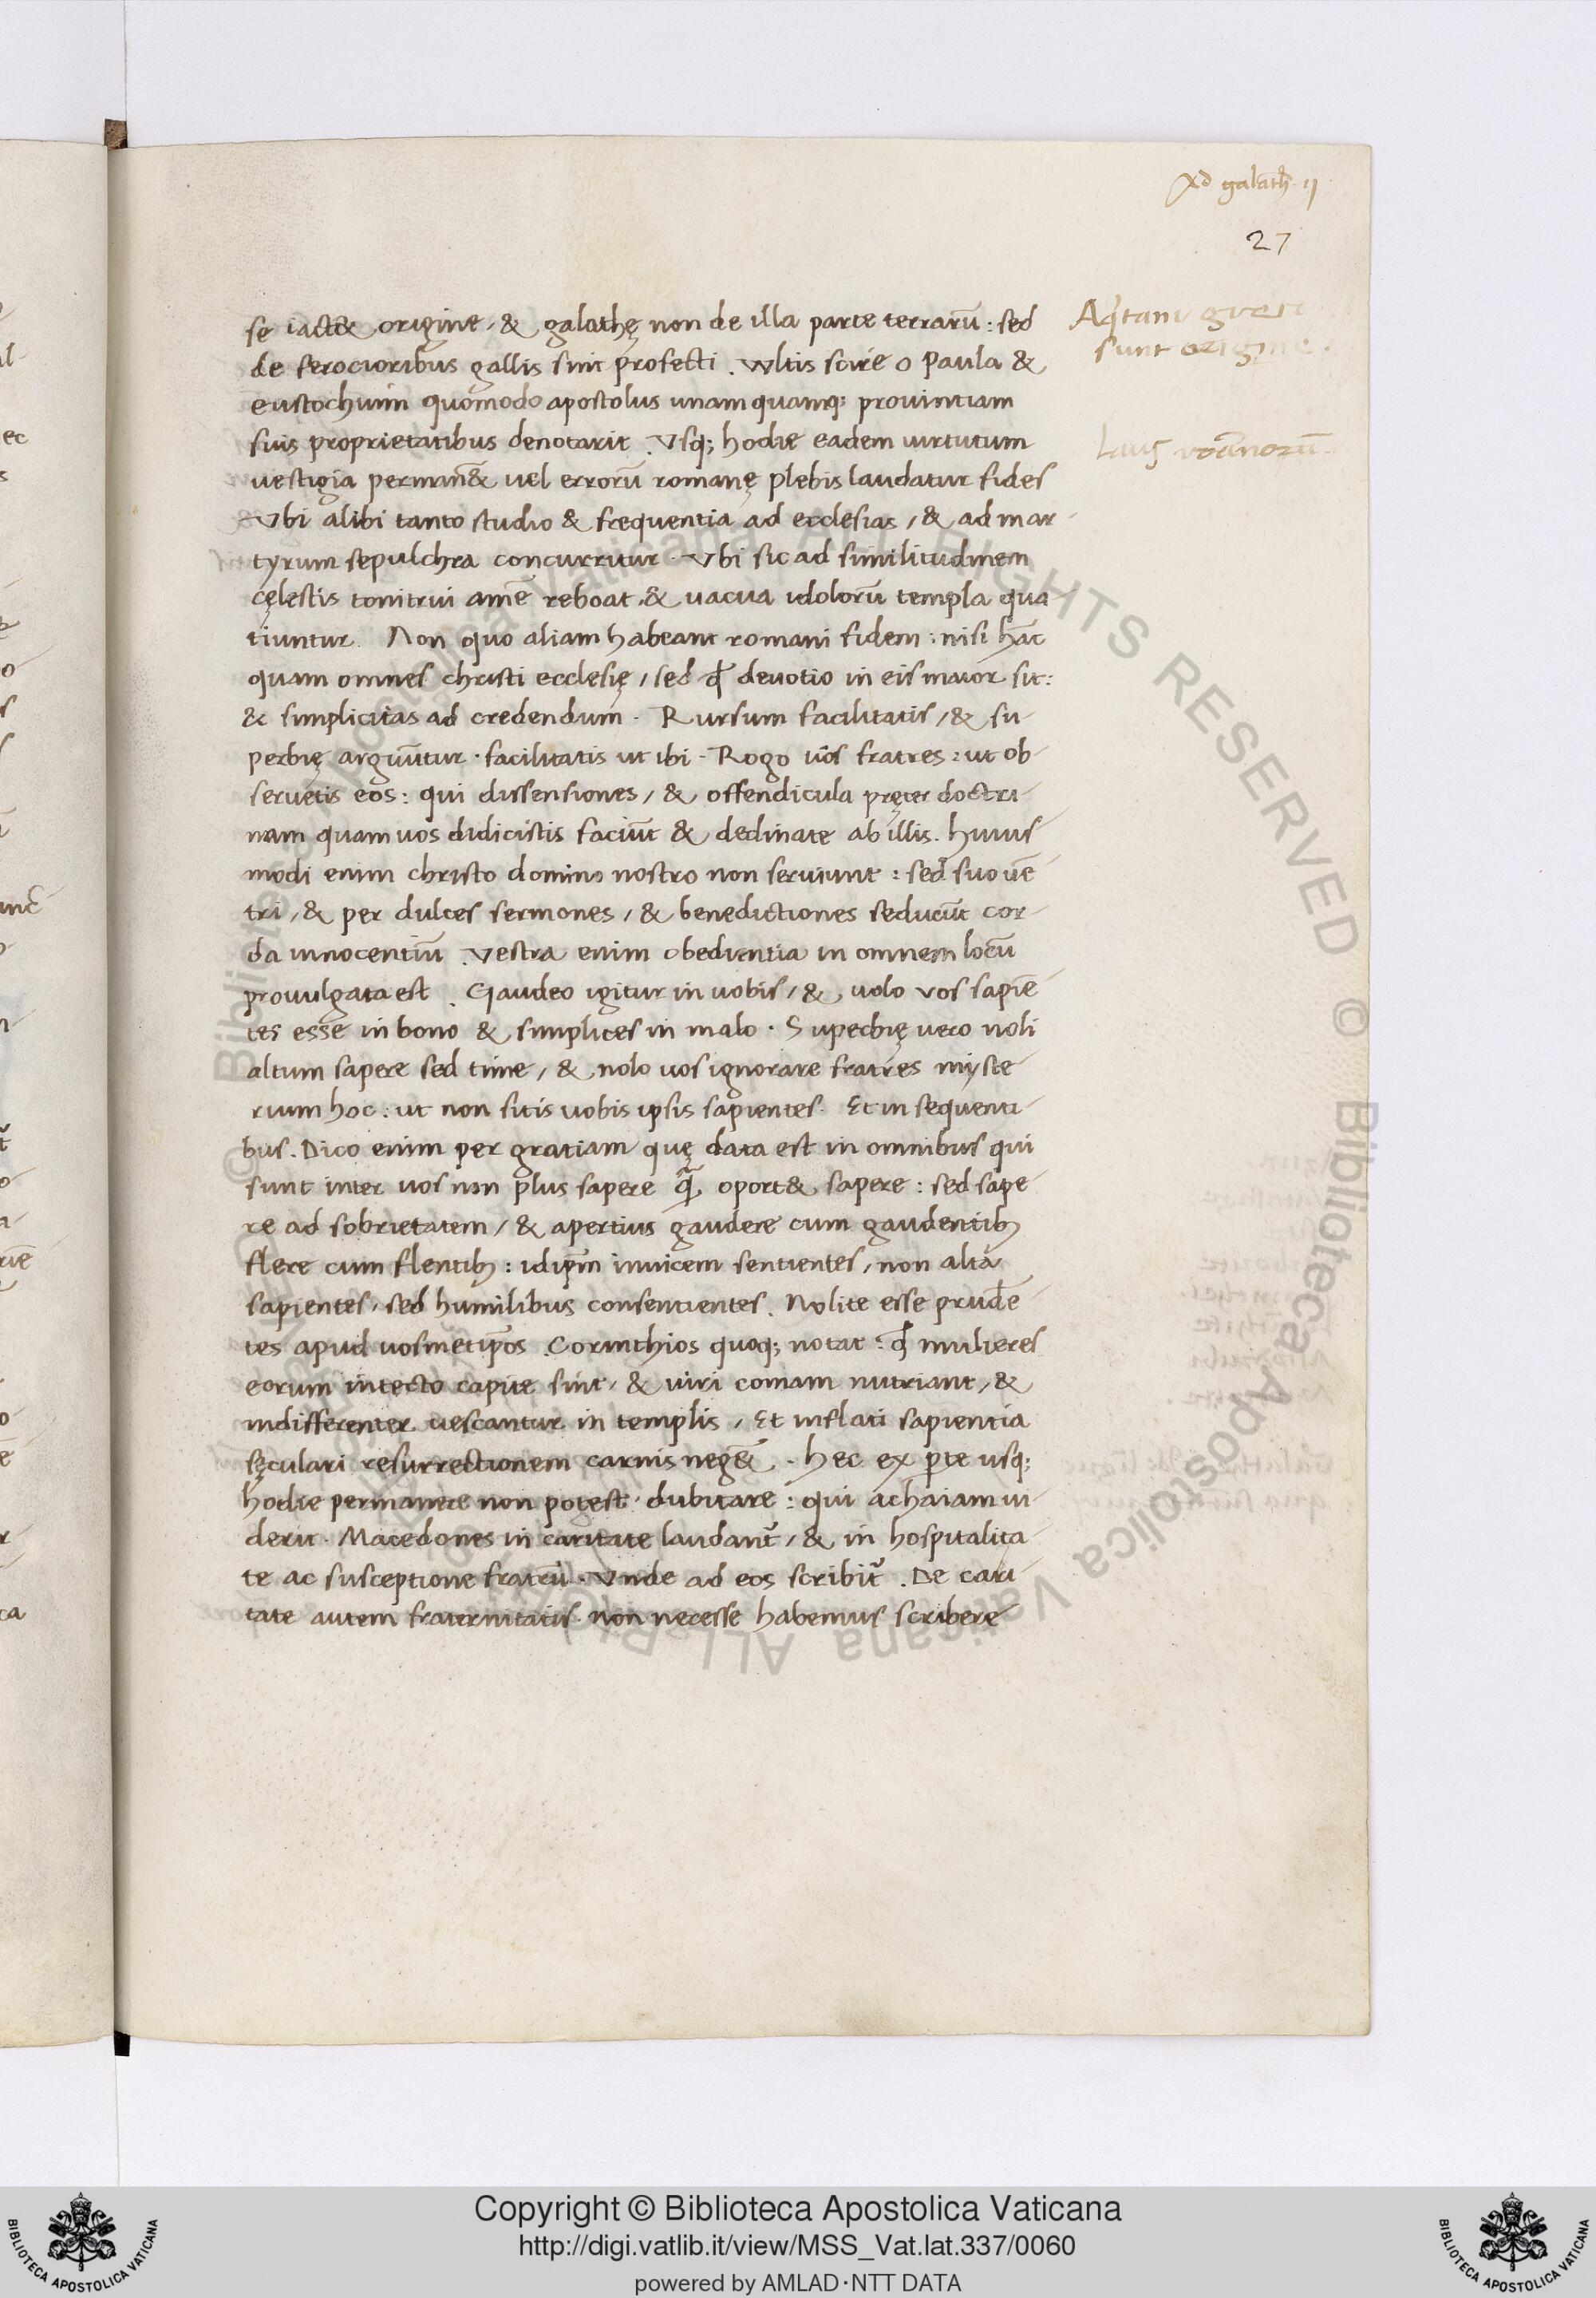 Ad galath̄. ij
27
se iact& origine, & galathę non de illa parte terrarū: sed
Aq̇tani greci
sunt origine.
de ferocioribus gallis sint profecti. Vultis scire o Paula &
eustochium quomodo apostolus unam quamq; prouintiam
suis proprietatibus denotarit. Vsq; hodie eadem uirtutum
Laus romanorū.
uestigia perman& uel errorū romanę plebis laudatur fides
Vbi alibi tanto studio & frequentia ad ecclesias, & ad mar-
tyrum sepulchra concurritur. Vbi sic ad similitudinem
cęlestis tonitrui amē reboat, & uacua idolorū templa qua
tiuntur. Non quo aliam habeant romani fidem: nisi hāc
quam omnes christi ecclesię, sed ꝙ deuotio in eis maior sit:
& simplicitas ad credendum. Rursum facilitatis, & su-
perbię arguūtur. facilitatis ut ibi. Rogo uos fratres: ut ob-
seruetis eos: qui dissensiones, & offendicula pręter doctri-
nam quam uos didicistis faciūt & declinate ab illis. huius
modi enim christo domino nostro non seruiunt: sed suo uē
tri, & per dulces sermones, & benedictiones seducūt cor-
da innocentiū. Vestra enim obedientia in omnem locū
prouulgata est. Gaudeo igitur in uobis, & uolo vos sapiē
tes esse in bono & simplices in malo. Superbię vero noli
altum sapere sed time, & nolo uos ignorare fratres myste
rium hoc: ut non sitis uobis ipsis sapientes. Et in sequenti-
bus. Dico enim per gratiam quę data est in omnibus qui
sunt inter uos non plus sapere q̄ oport& sapere: sed sape-
re ad sobrietatem, & apertius gaudere cum gaudentib;
flere cum flentib;: idip̄m inuicem sentientes, non alta
sapientes, sed humilibus consentientes. Nolite esse prudē
tes apud uosmetip̄os. Corinthios quoq; notat: ꝙ mulieres
eorum intecto capite sint, & uiri comam nutriant, &
indifferenter uescantur in templis, Et inflati sapientia
sęculari resurrectionem carnis neg&̄. hec ex ꝑte usq;
hodie permanere non potest dubitare: qui achaiam ui-
derit. Macedones in caritate laudant̄, & in hospitalita-
te ac susceptione fratrū. Vnde ad eos scribit̄. De cari-
tate autem fraternitatis non necesse habemus scribere
Copyright © Biblioteca Apostolica Vaticana
http://digi.vatlib.it/view/MSS_Vat.lat.337/0060
powered by AMLAD·NTT DATA